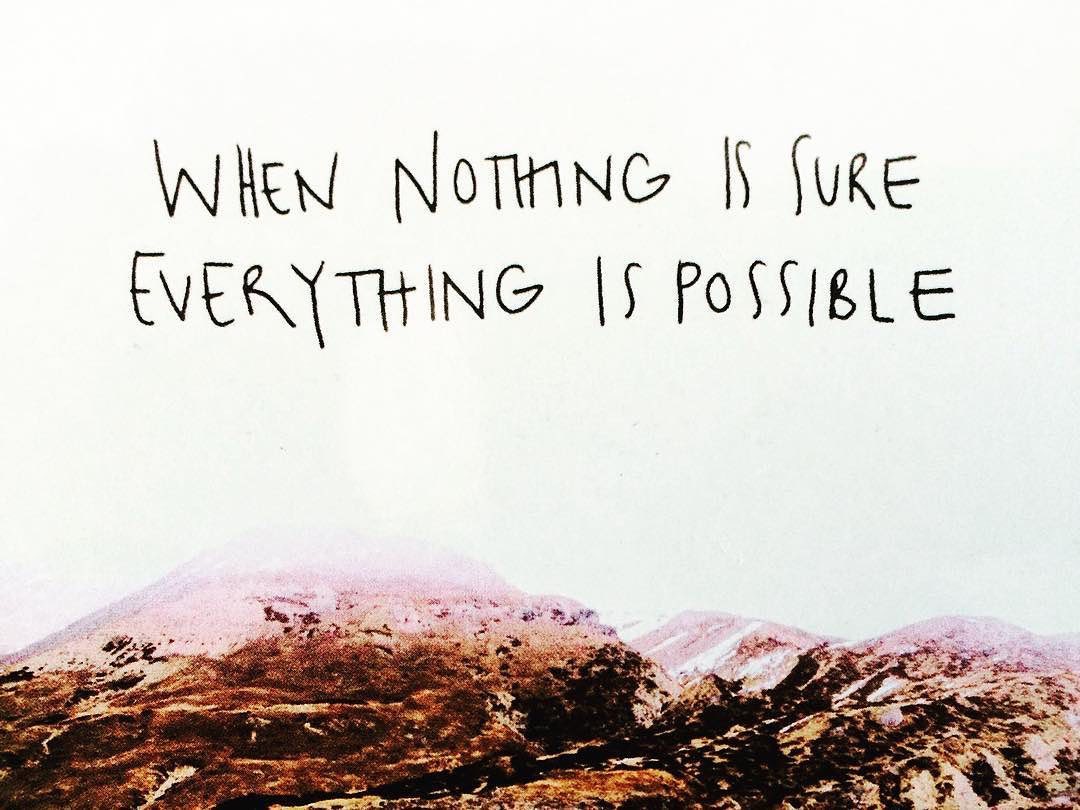 WHEN NOTHING IS SURE
EVERYTHING IS POSSIBLE